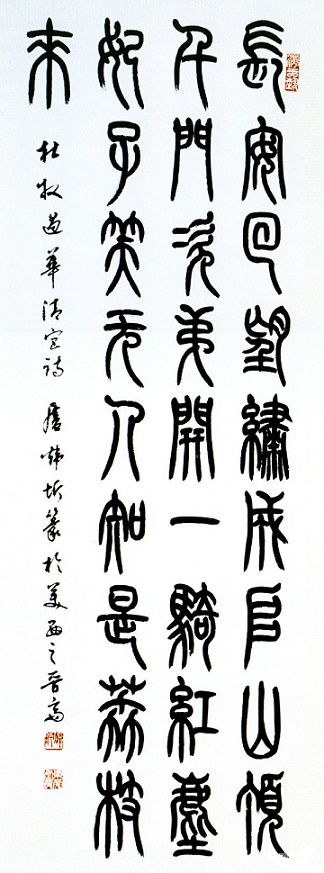 長安回望繡成𠂤山頂
千門次弟開一騎紅塵
妃子笑无人知是荔枝
來
杜牧過華清宮詩 篆於美西之